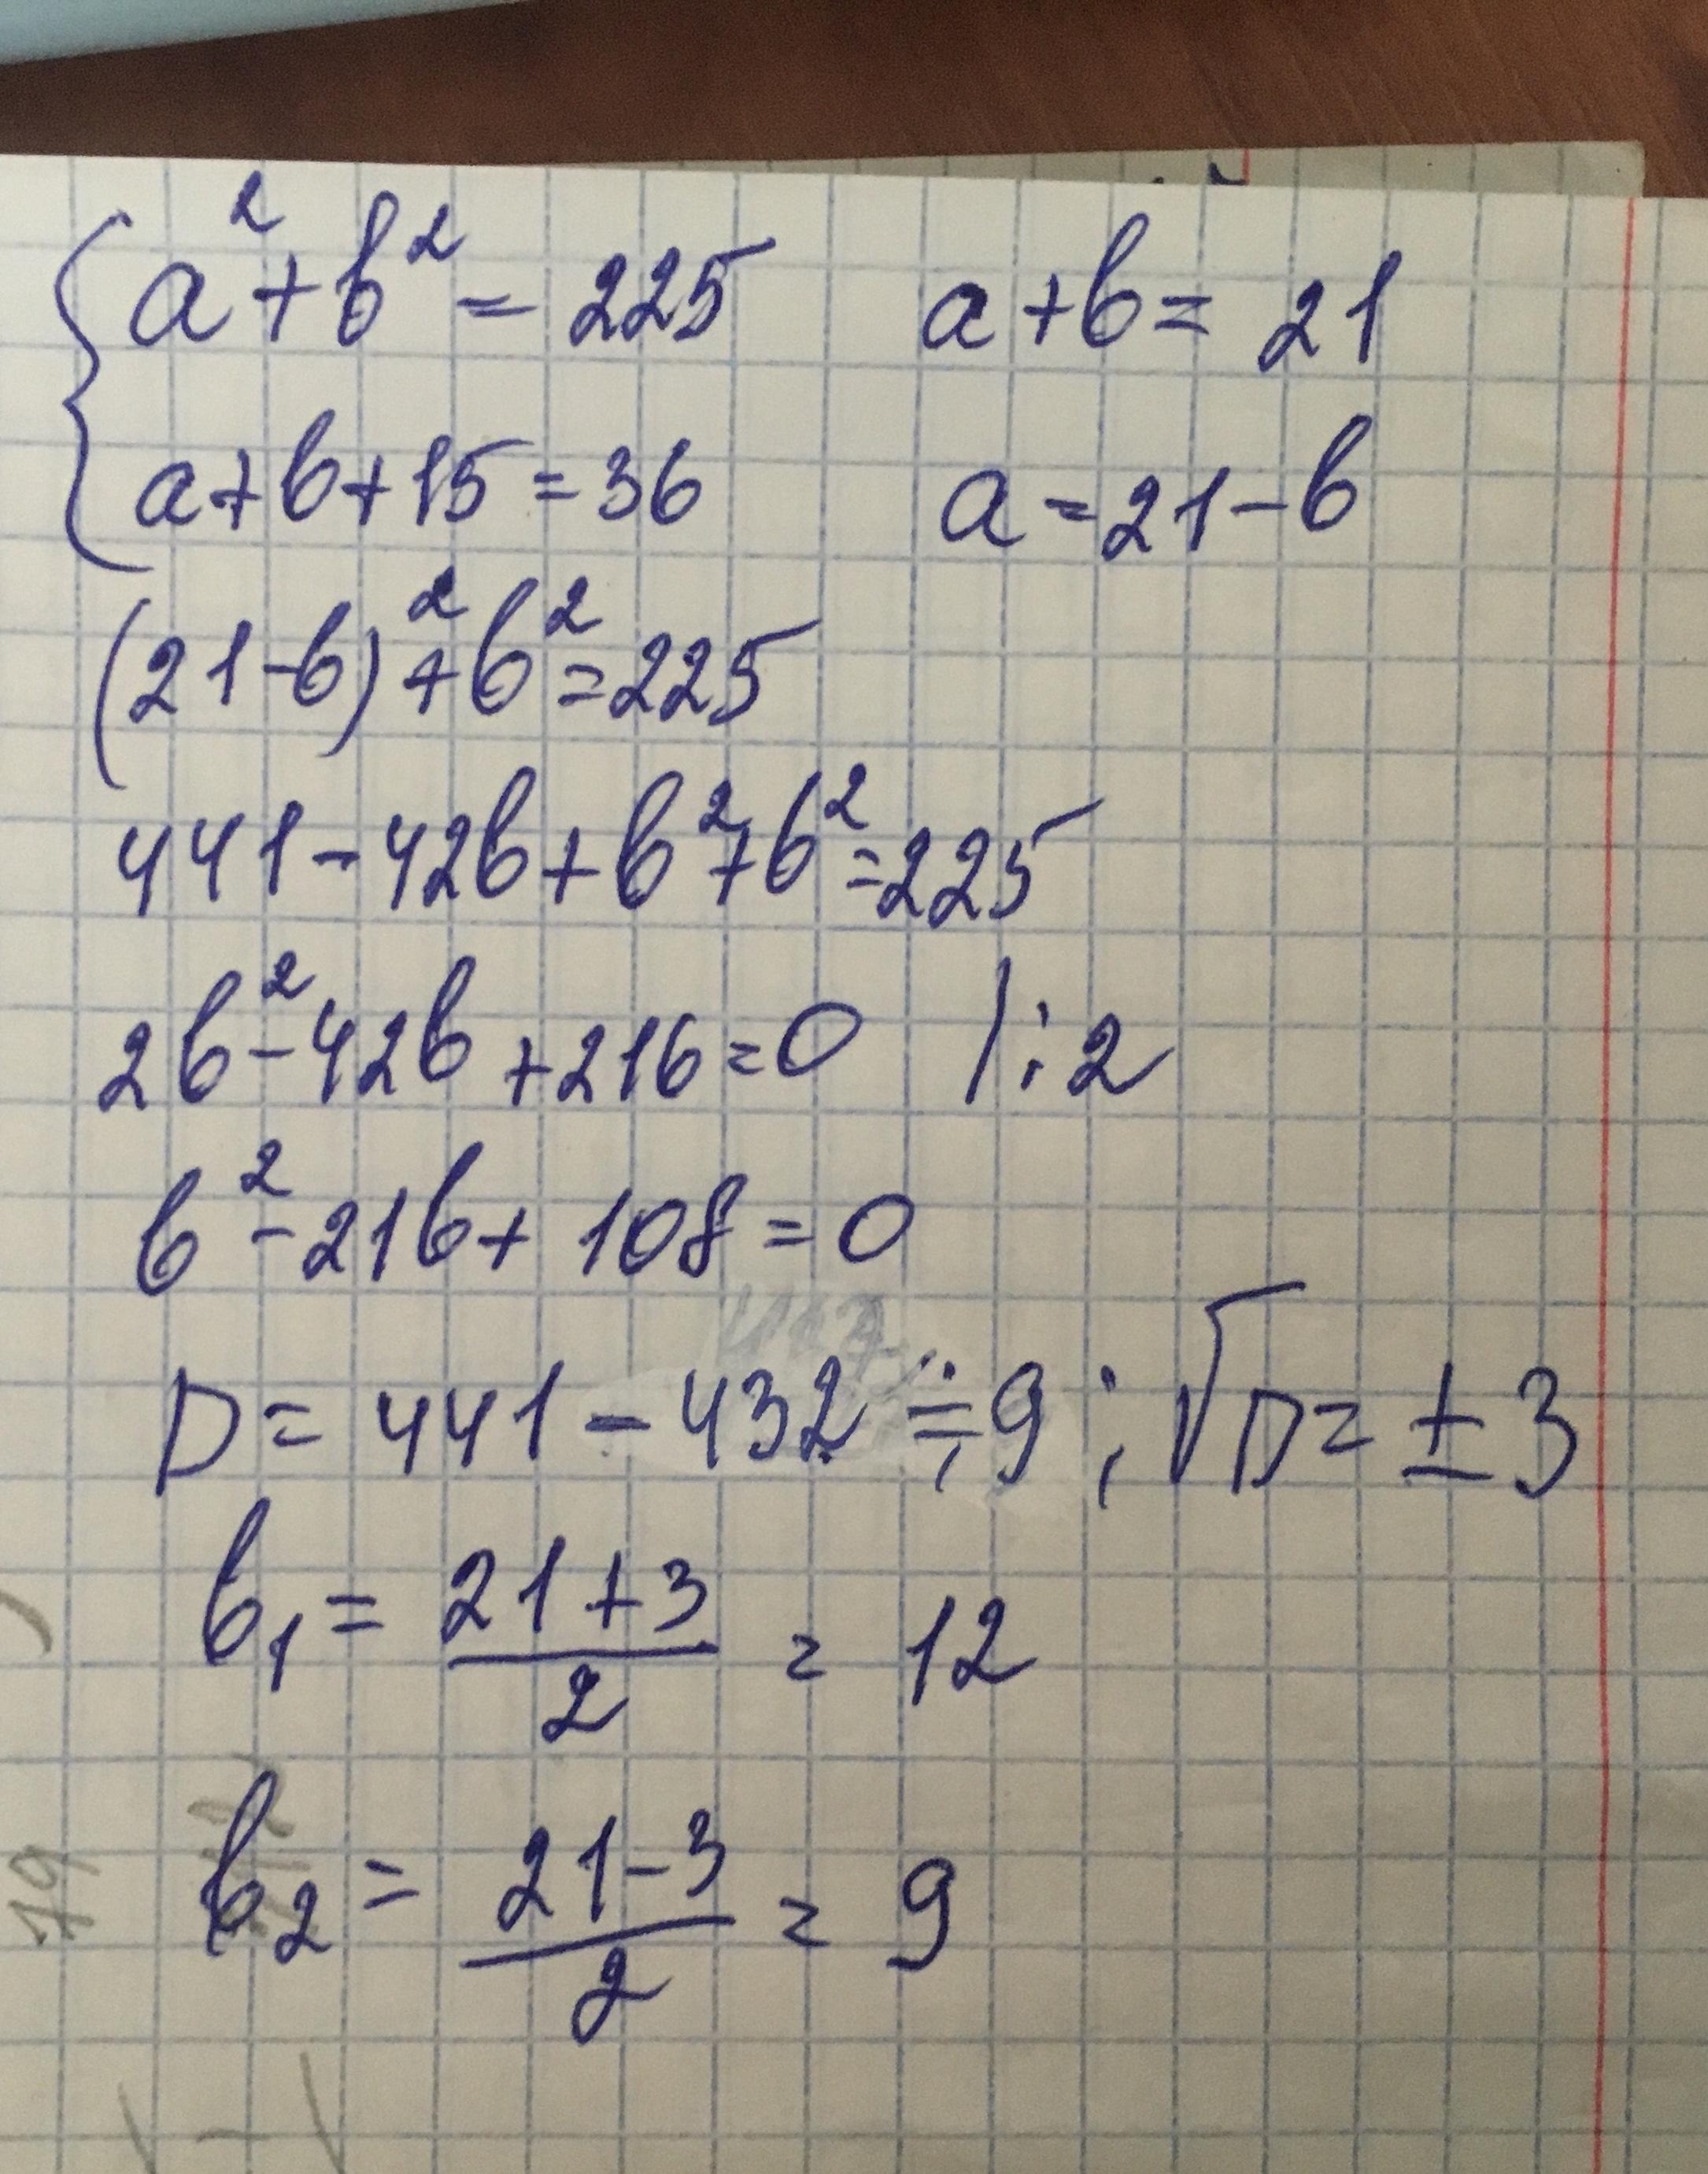 a² + b² = 225    a + b = 21
a + b + 15 = 36    a = 21 - b
(21 - b)² + b² = 225
441 - 42b + b² + b² = 225
2b² - 42b + 216 = 0  | : 2
b² - 21b + 108 = 0
D = 441 - 432 = 9 ; √D = ± 3
b₁ = (21 + 3)/2 = 12
b₂ = (21 - 3)/2 = 9
79